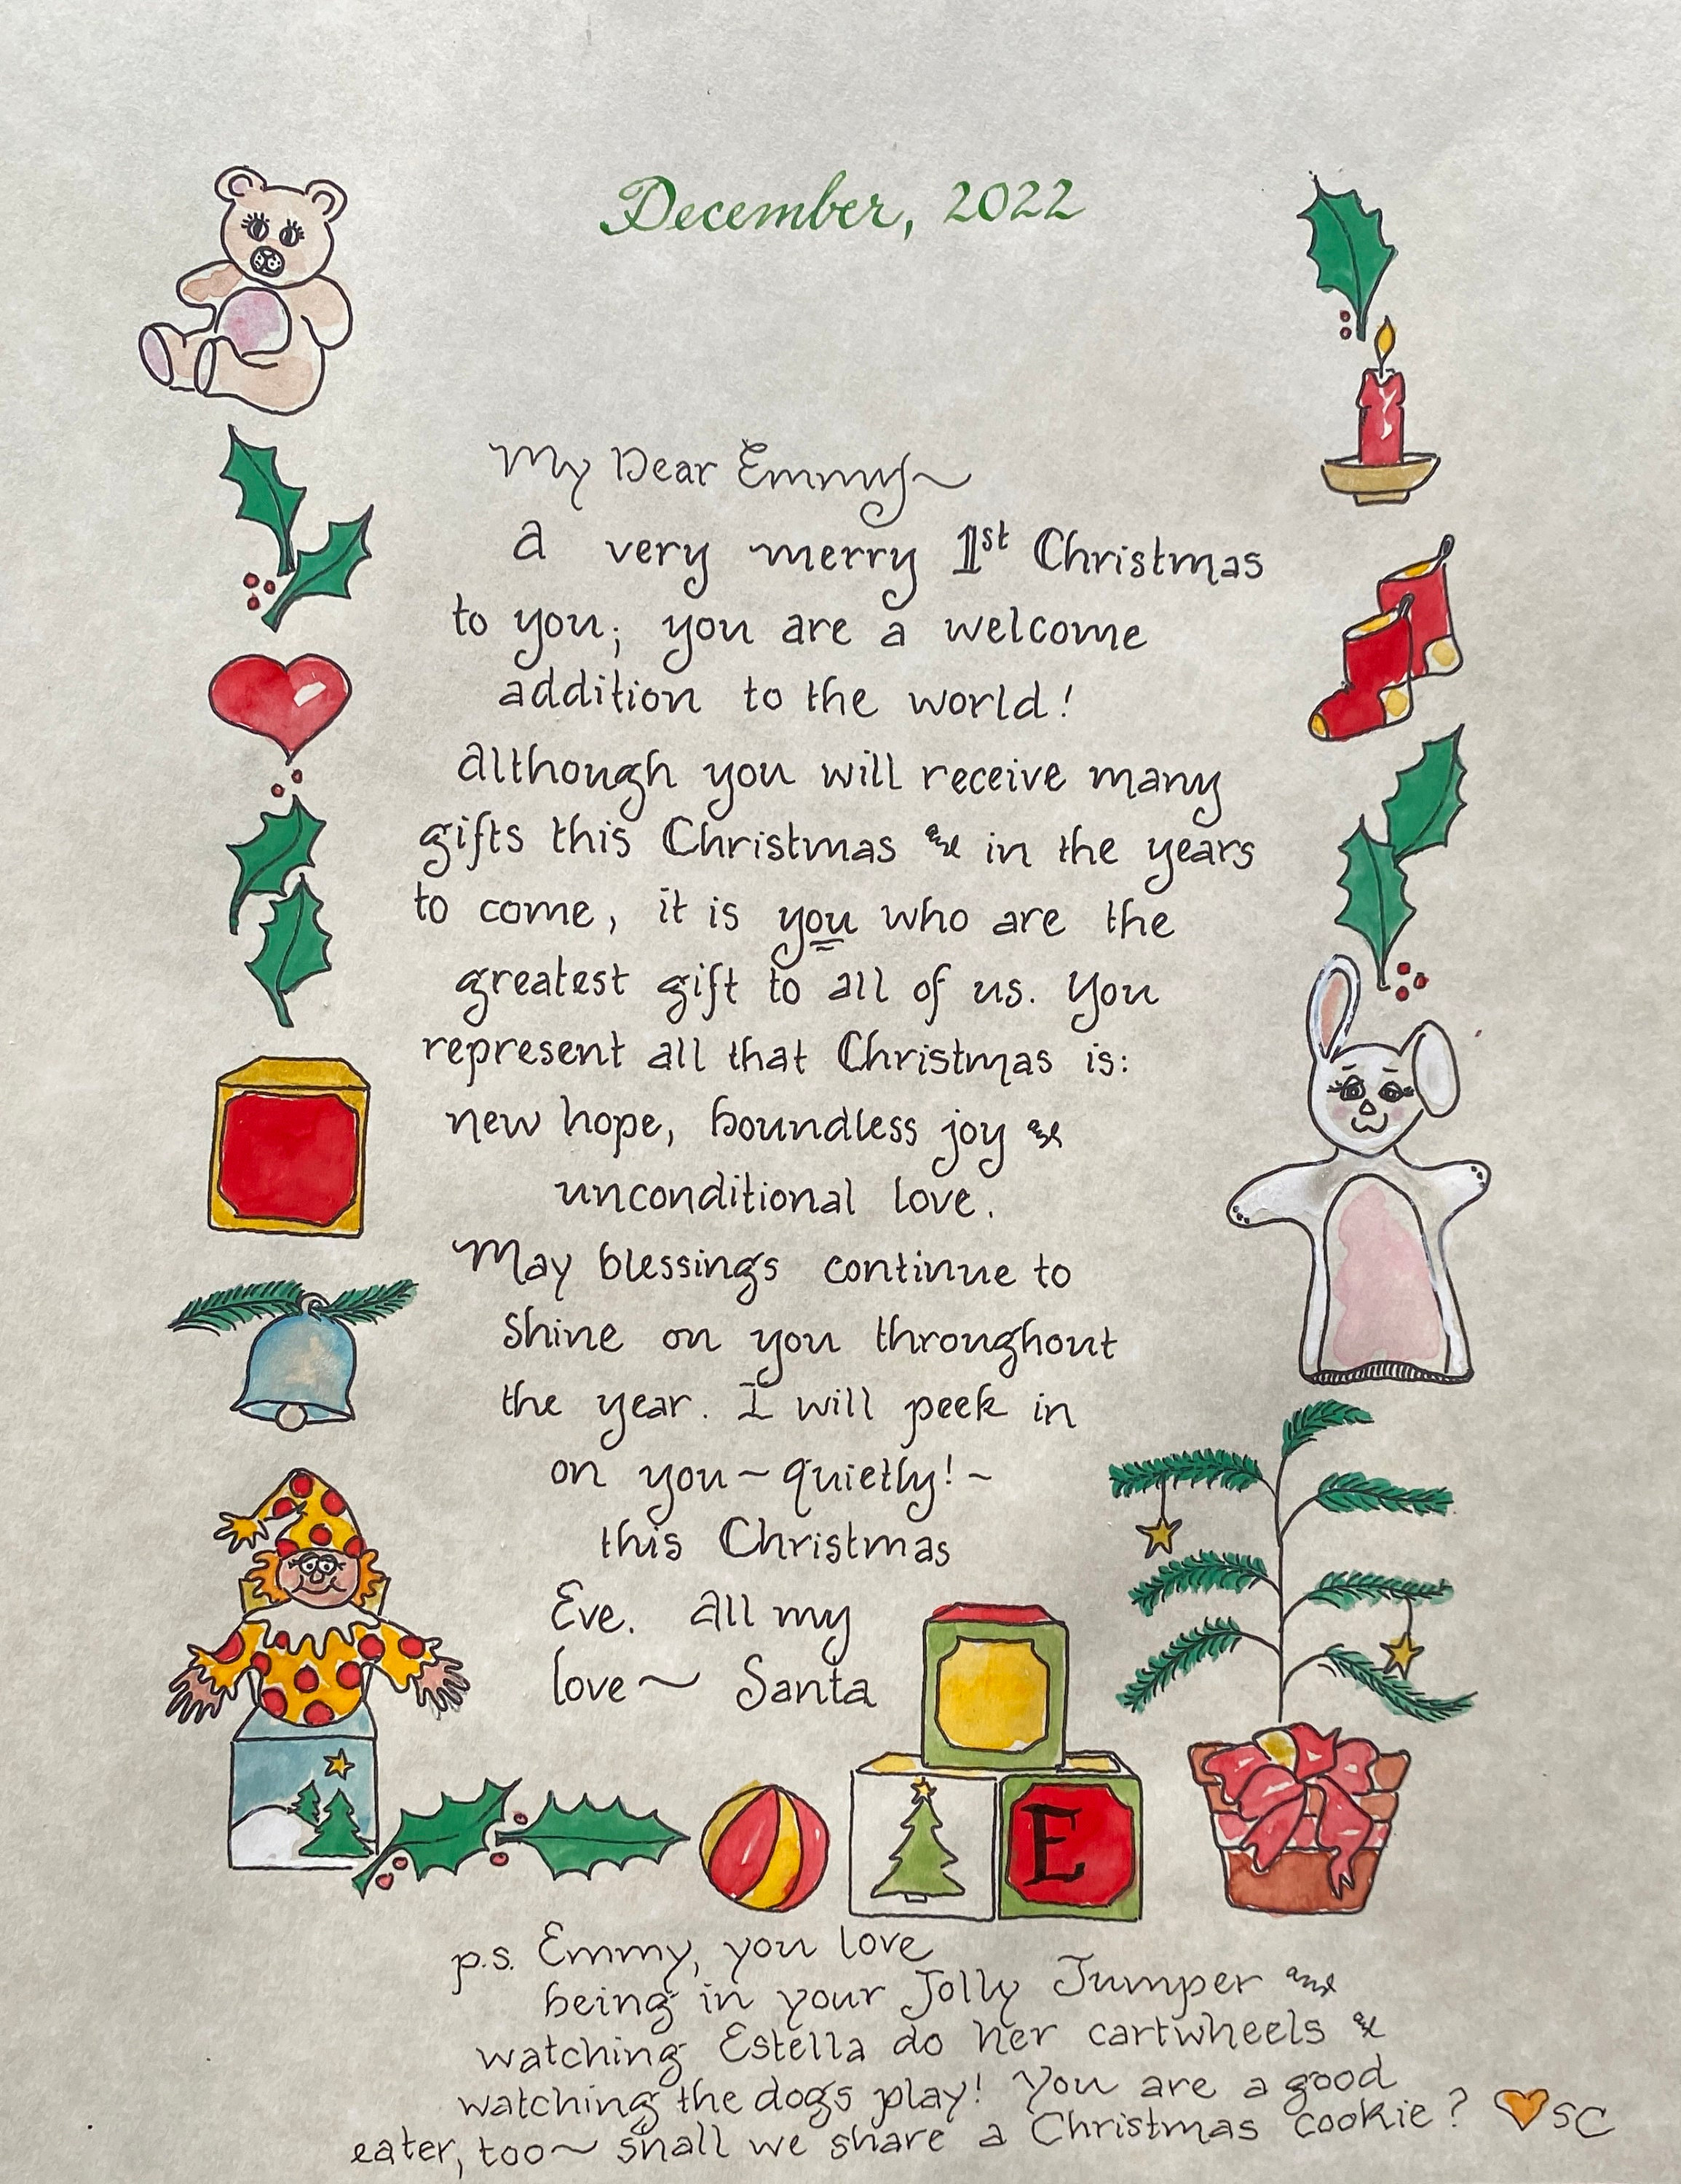 December, 2022
My Dear Emmy~
a very merry 1st Christmas
to you; you are a welcome
addition to the world!
although you will receive many
gifts this Christmas & in the years
to come, it is you who are the
greatest gift to all of us. You
represent all that Christmas is:
new hope, boundless joy &
unconditional love.
May blessings continue to
shine on you throughout
the year. I will peek in
on you ~ quietly! ~
this Christmas
Eve. all my
love ~ Santa
E
p.s. Emmy, you love
being in your Jolly Jumper and
watching Estella do her cartwheels &
watching the dogs play! You are a good
eater, too ~ shall we share a Christmas cookie? 🧡SC